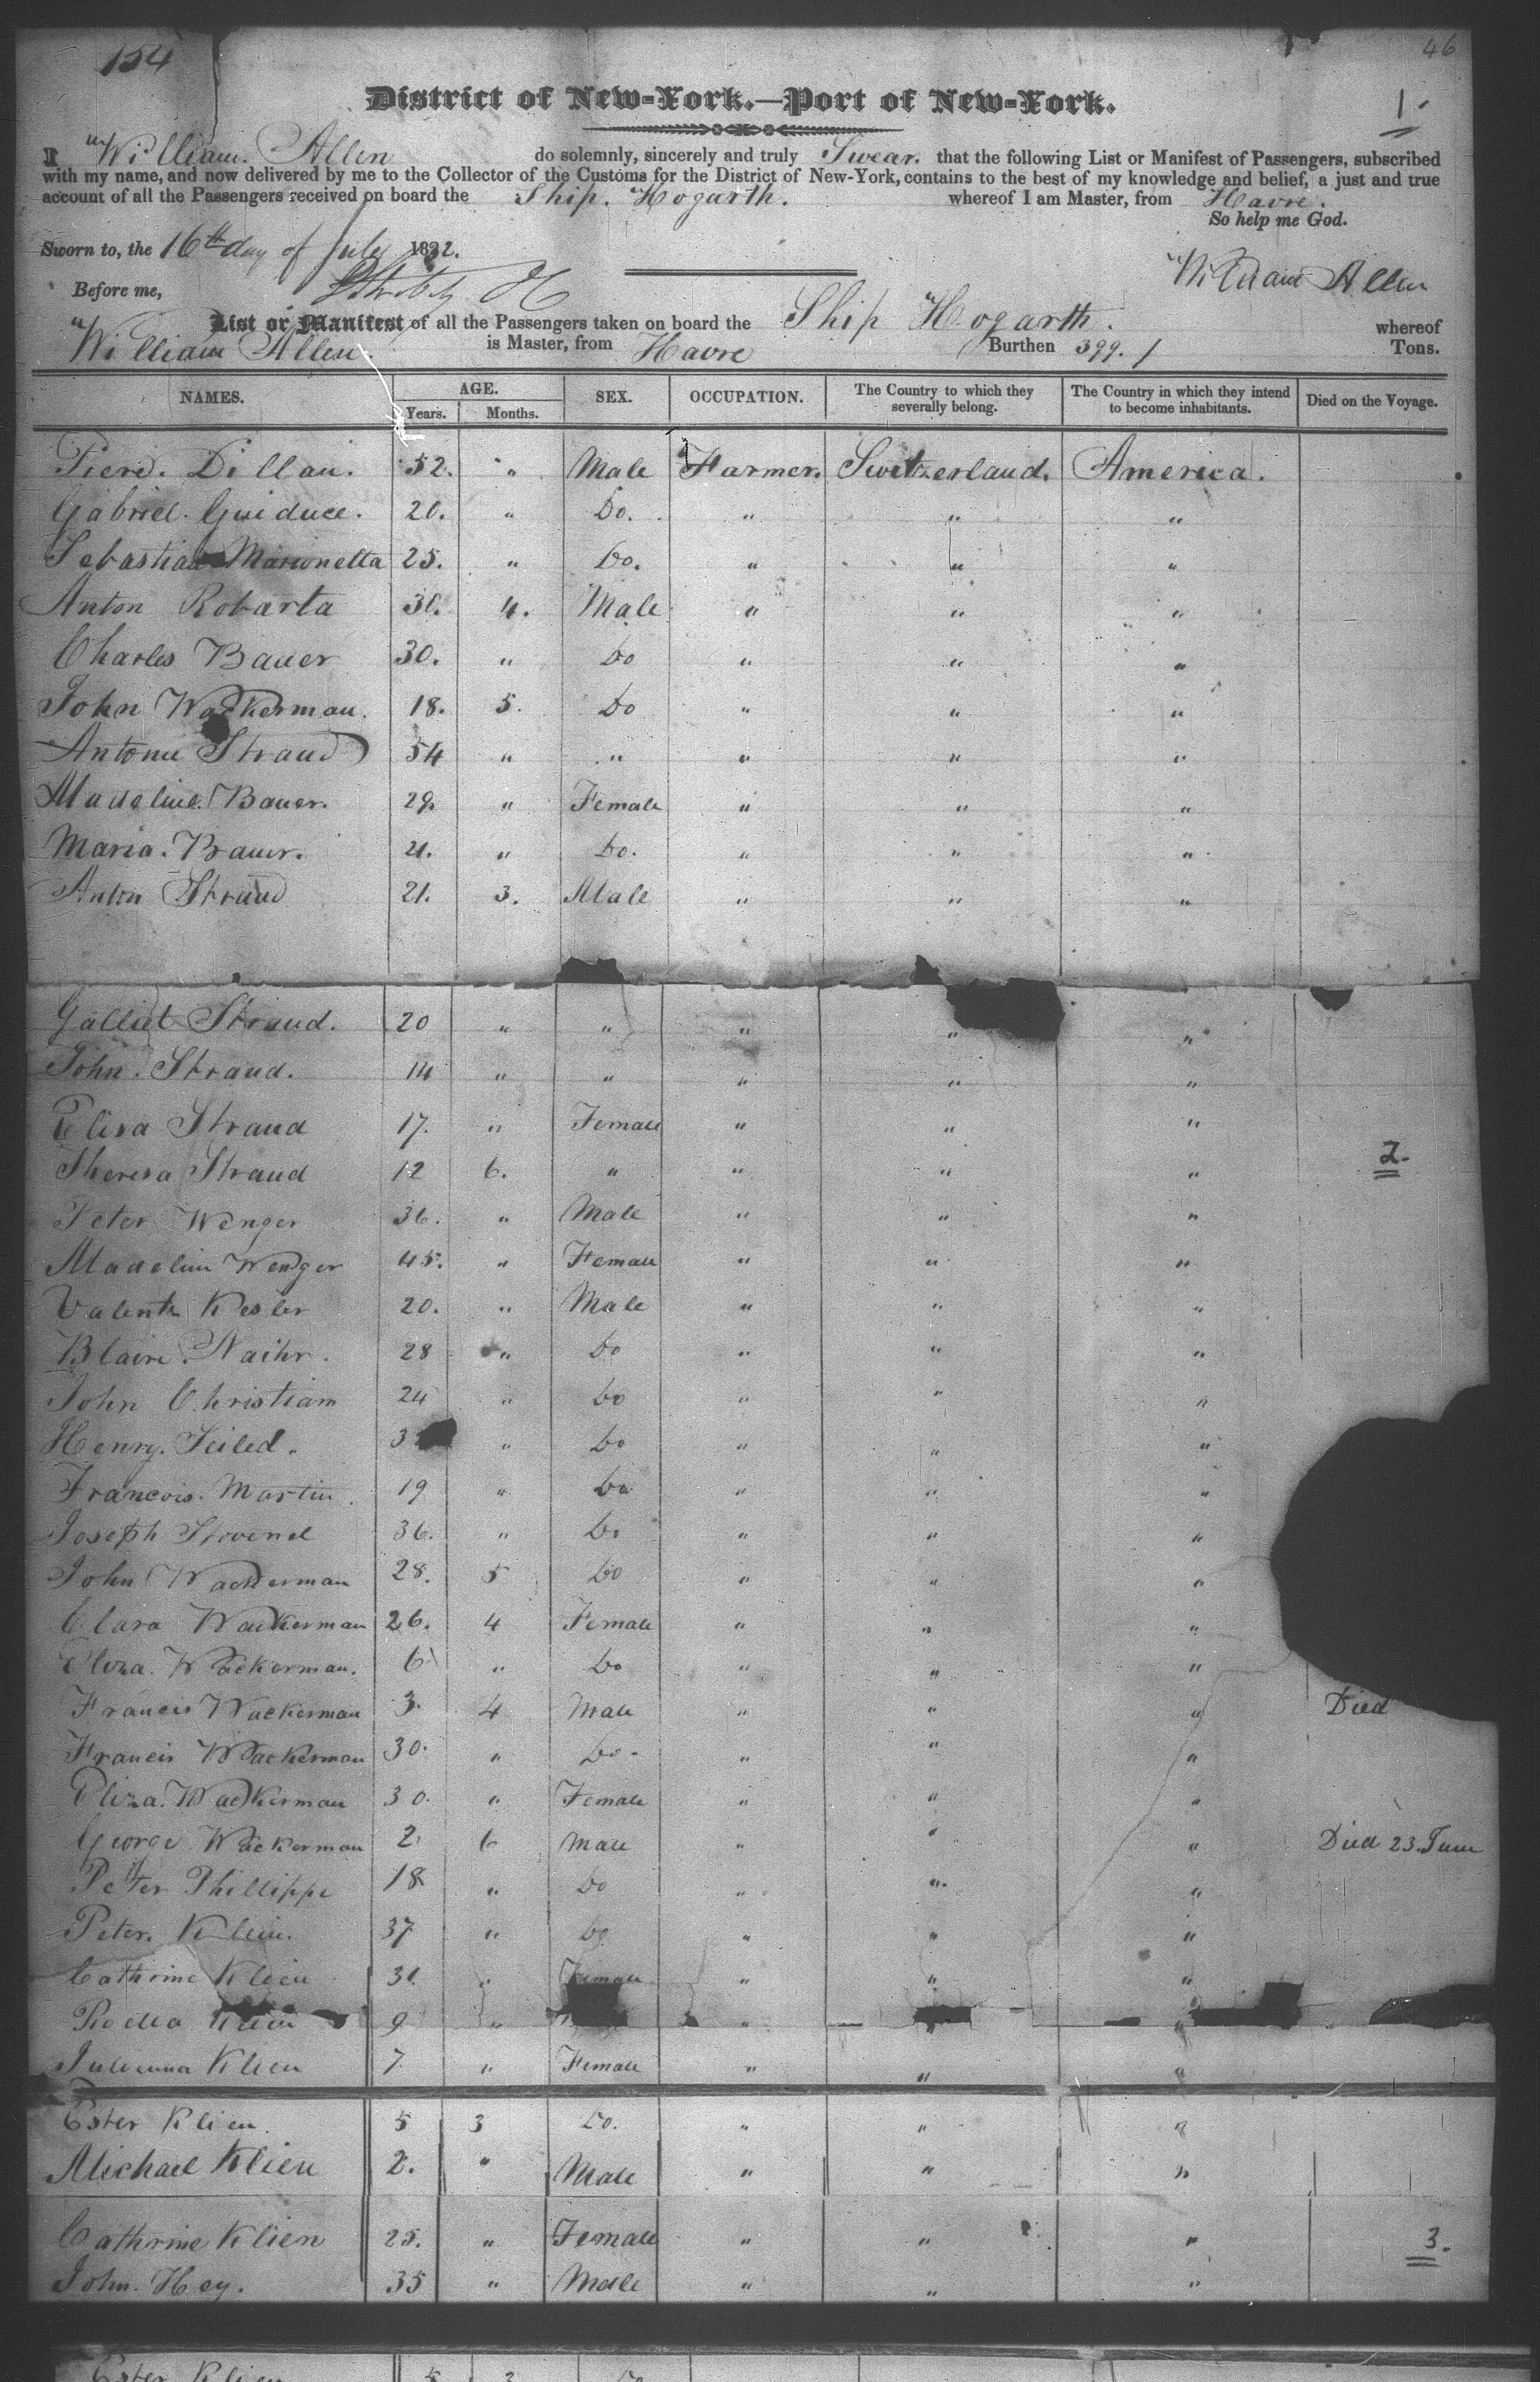 154
46
District of New-York.—Port of New-York.
1.
I William Allen do solemnly, sincerely and truly Swear. that the following List or Manifest of Passengers, subscribed
with my name, and now delivered by me to the Collector of the Customs for the District of New-York, contains to the best of my knowledge and belief, a just and true
account of all the Passengers received on board the Ship. Hogarth. whereof I am Master, from Havre.
So help me God.
Sworn to, the 16th day of July 1832.
William Allen
Before me,
List or Manifest of all the Passengers taken on board the Ship Hogarth. whereof
William Allen. is Master, from Havre Burthen 399. Tons.
NAMES. AGE. SEX. OCCUPATION. The Country to which they severally belong. The Country in which they intend to become inhabitants. Died on the Voyage.
Years. Months.
Dillan. 52. " Male Farmer. Switzerland. America.
Gabriel. 20. " Do. " " "
Sebastian Marionetta 25. " Do. " " "
Anton Robarta 30. 4. Male " " "
Charles Bauer 30. " Do " " "
John Wackerman. 18. 5. Do " " "
Straud 54 " " " " "
Madeline. Bauer. 29. " Female " " "
Maria. Brauer. 21. " Do. " " "
Anton Straud 21. 3. Male " " "
Straud. 20 " " " " "
John. Straud. 14 " " " " "
Elisa Straud 17. " Female " " "
Theresa Straud 12 6. " " " "
2.
Peter Wenger 36. " Male " " "
Wenger 45. " Female " " "
Kesler 20. " Male " " "
Blaire. 28 " Do " " "
John Christiam 24 " Do " " "
Henry. Seiled. " Do " " "
Francois. Martin. 19 " Do " " "
Joseph 36. " Do " " "
John Wackerman 28. 5 Do " " "
Clara Wackerman 26. 4 Female " " "
Eliza. Wackerman. 6 " Do " " "
Francis Wackerman 3. 4 Male " " " Died
Francis Wackerman 30. " Do " " "
Eliza. Wackerman 30. " Female " " "
George Wackerman 2 6 Male " " " Died 23. June
Peter Phillippe 18 " Do " " "
Peter. Klein. 37 " Do " " "
Cathrine Klein 31. " Female " " "
Klein 9 " " " "
Julianna Klien 7 " Female " " "
Ester Klien. 5 3 Do. " " "
Michael Klien 2. " Male " " "
Cathrine Klien 25. " Female " " "
3.
John. Hey. 35 " Male " " "
Ester Klien 5 3 Do